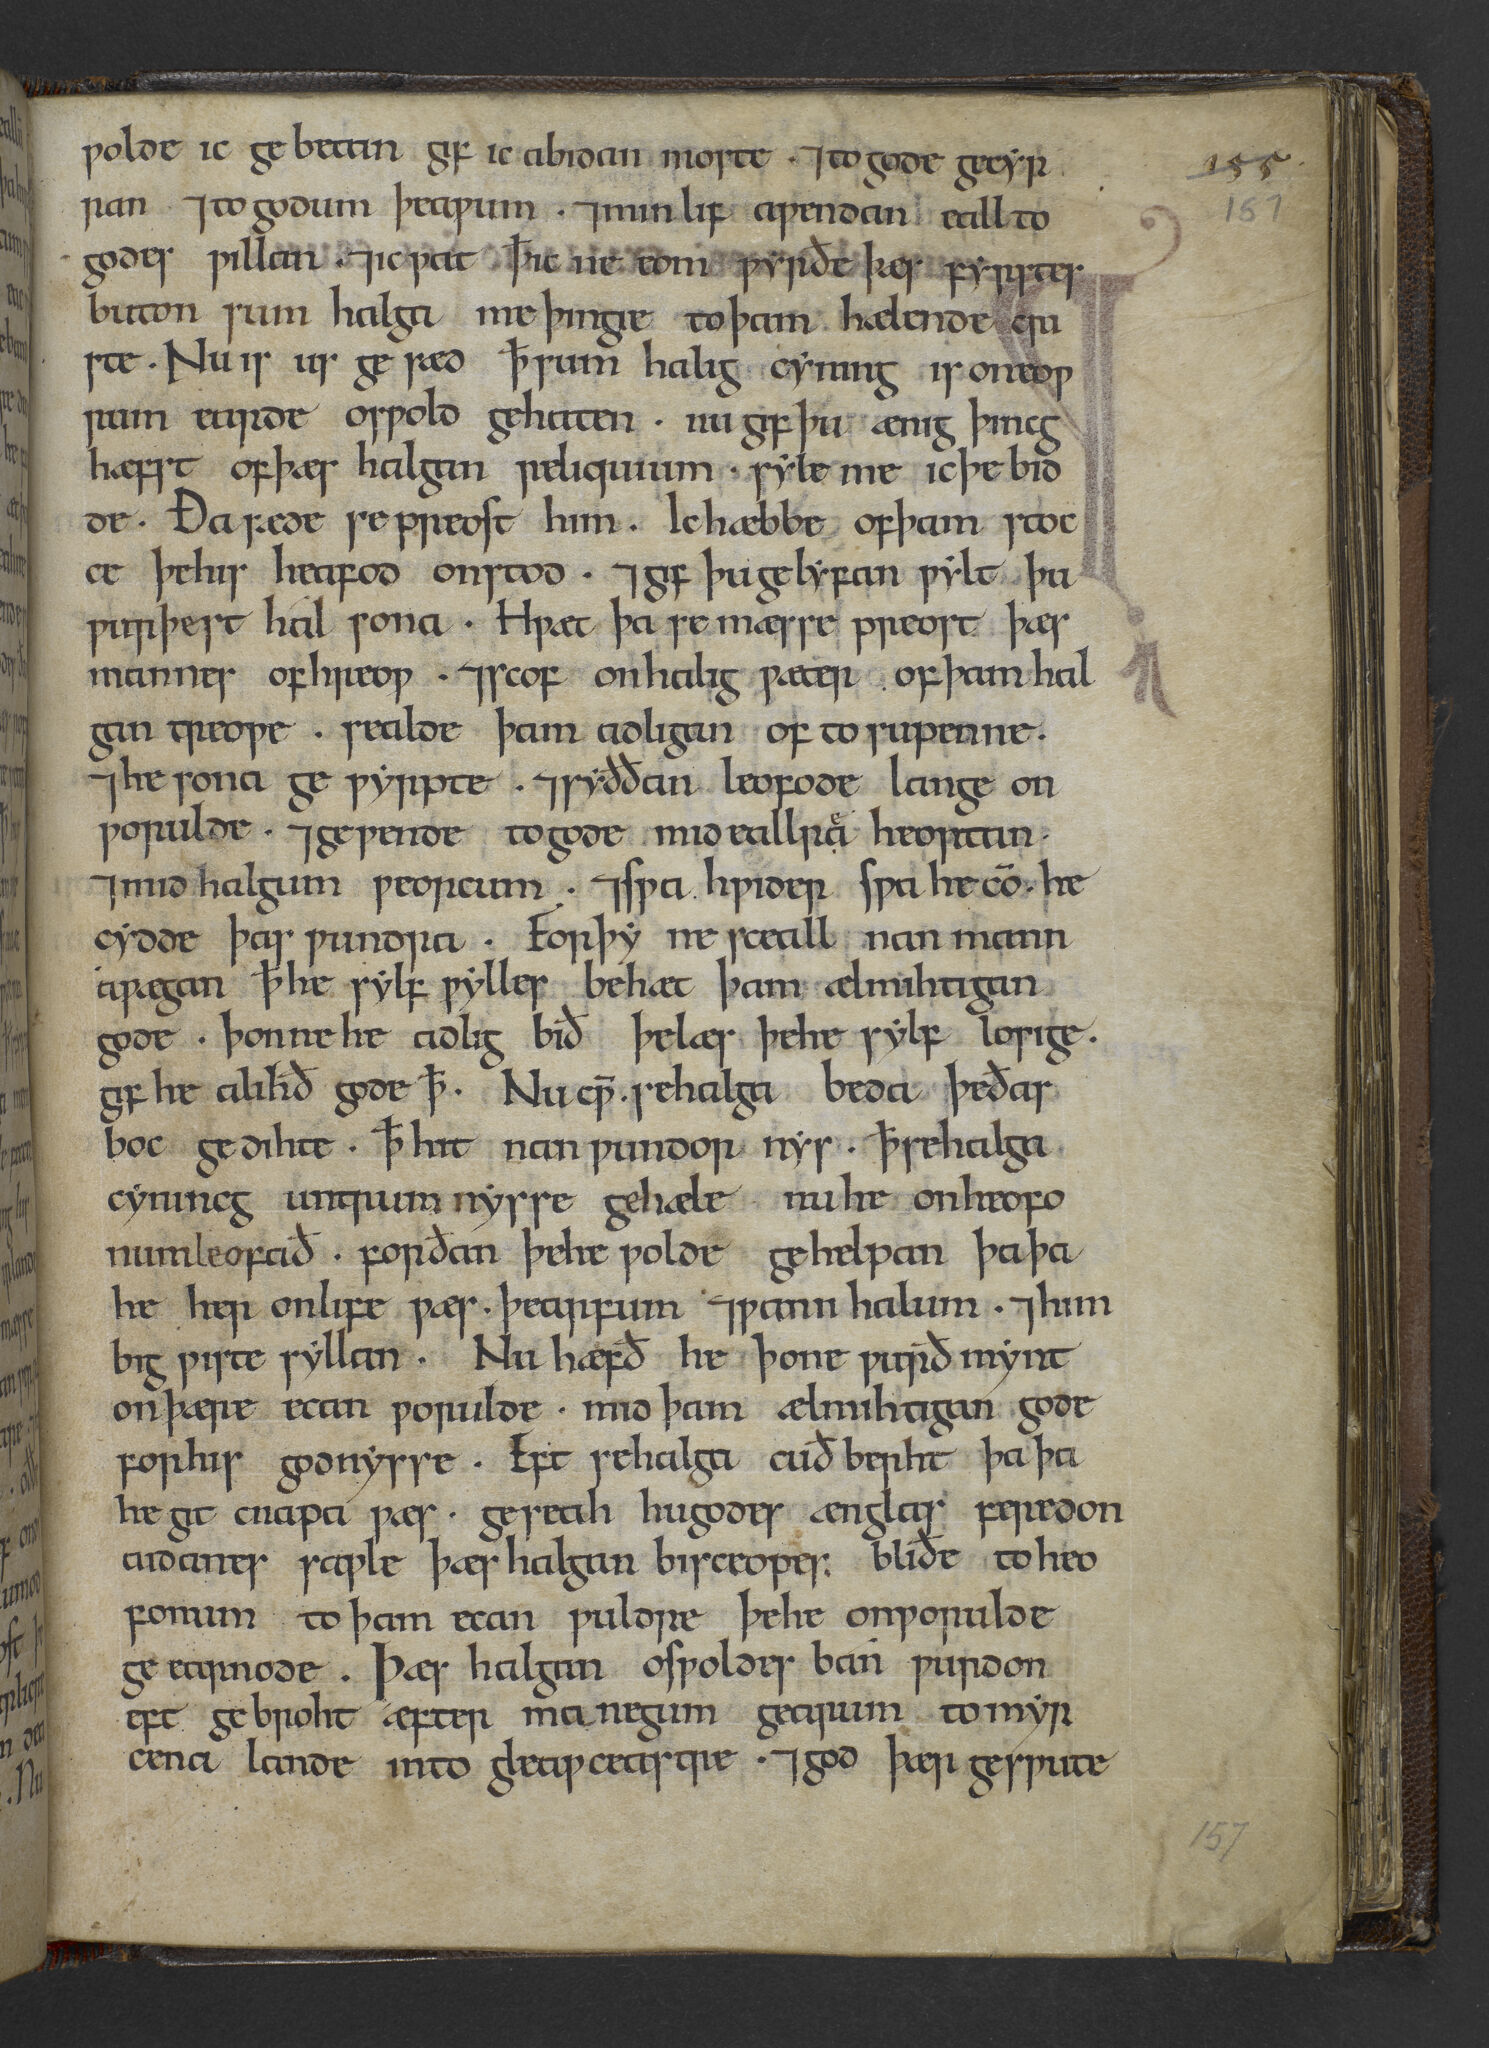 ƿolde ic ge betan gif ic abidan moste · ⁊ to gode gecyr
155
ran ⁊ to godum þeaƿum · ⁊ min lif aƿendan eall to
157
godes ƿillan · ⁊ ic ƿat ꝥ ic ne eom ƿyrðe þæs fyrstes
buton sum halga me þingie to þam hælende cri
ste · Nu is us ge sæd ꝥ sum halig cyning is on eoƿ
rum earde osƿold gehaten · nu gif þu ænig þincg
hæfst of þæs halgan reliquium · syle me ic þe bid
de · Ða sæde se preost him · Ic hæbbe of þam stoc
ce þe his heafod on stod · ⁊ gif þu gelyfan ƿylt þu
ƿurþest hal sona · Hƿæt þa se mæsse preost þæs
mannes of hreoƿ · ⁊ scof on halig ƿæter of þam hal
gan treoƿe · sealde þam adligan of to supenne ·
⁊ he sona ge ƿyrpte · ⁊ syððan leofode lange on
ƿorulde · ⁊ geƿende to gode mid eallræ heortan ·
⁊ mid halgum ƿeorcum · ⁊ sƿa hƿider sƿa he cō · he
cydde þas ƿundra · Forþy ne sceall nan mann
aƿægan ꝥ he sylf ƿylles behæt þam ælmihtigan
gode · þonne he adlig bið þe læs þe he sylf losige ·
gif he alihð gode ꝥ · Nu cƿ̄ · se halga beda þe ðas
boc gedihte · ꝥ hit nan ƿundor nys · ꝥ se halga
cynincg untrumnysse gehæle nu he on heofo
num leofað · forðan þe he ƿolde gehelpan þa þa
he her on life ƿæs · þearfum ⁊ ƿann halum · ⁊ him
big ƿiste syllan · Nu hæfð he þone ƿurðmynt
on þære ecan ƿorulde · mid þam ælmihtigan gode
for his godnysse · Eft se halga cuðberht þa þa
he git cnapa ƿæs · geseah hu godes ænglas feredon
aidanes saƿle þæs halgan bisceopes bliðe to heo
fonum to þam ecan ƿuldre þe he on ƿorulde
ge earnode · Þæs halgan osƿoldes ban ƿurdon
eft gebroht æfter manegum gearum to myr
cena lande into gleaƿceastre · ⁊ god þær gesƿute
157